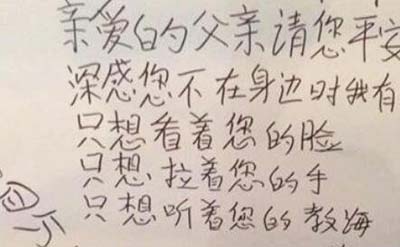 亲爱的父亲请您平安
深感您不在身边时我有
只想看着您的脸
只想拉着您的手
只想听着您的教海